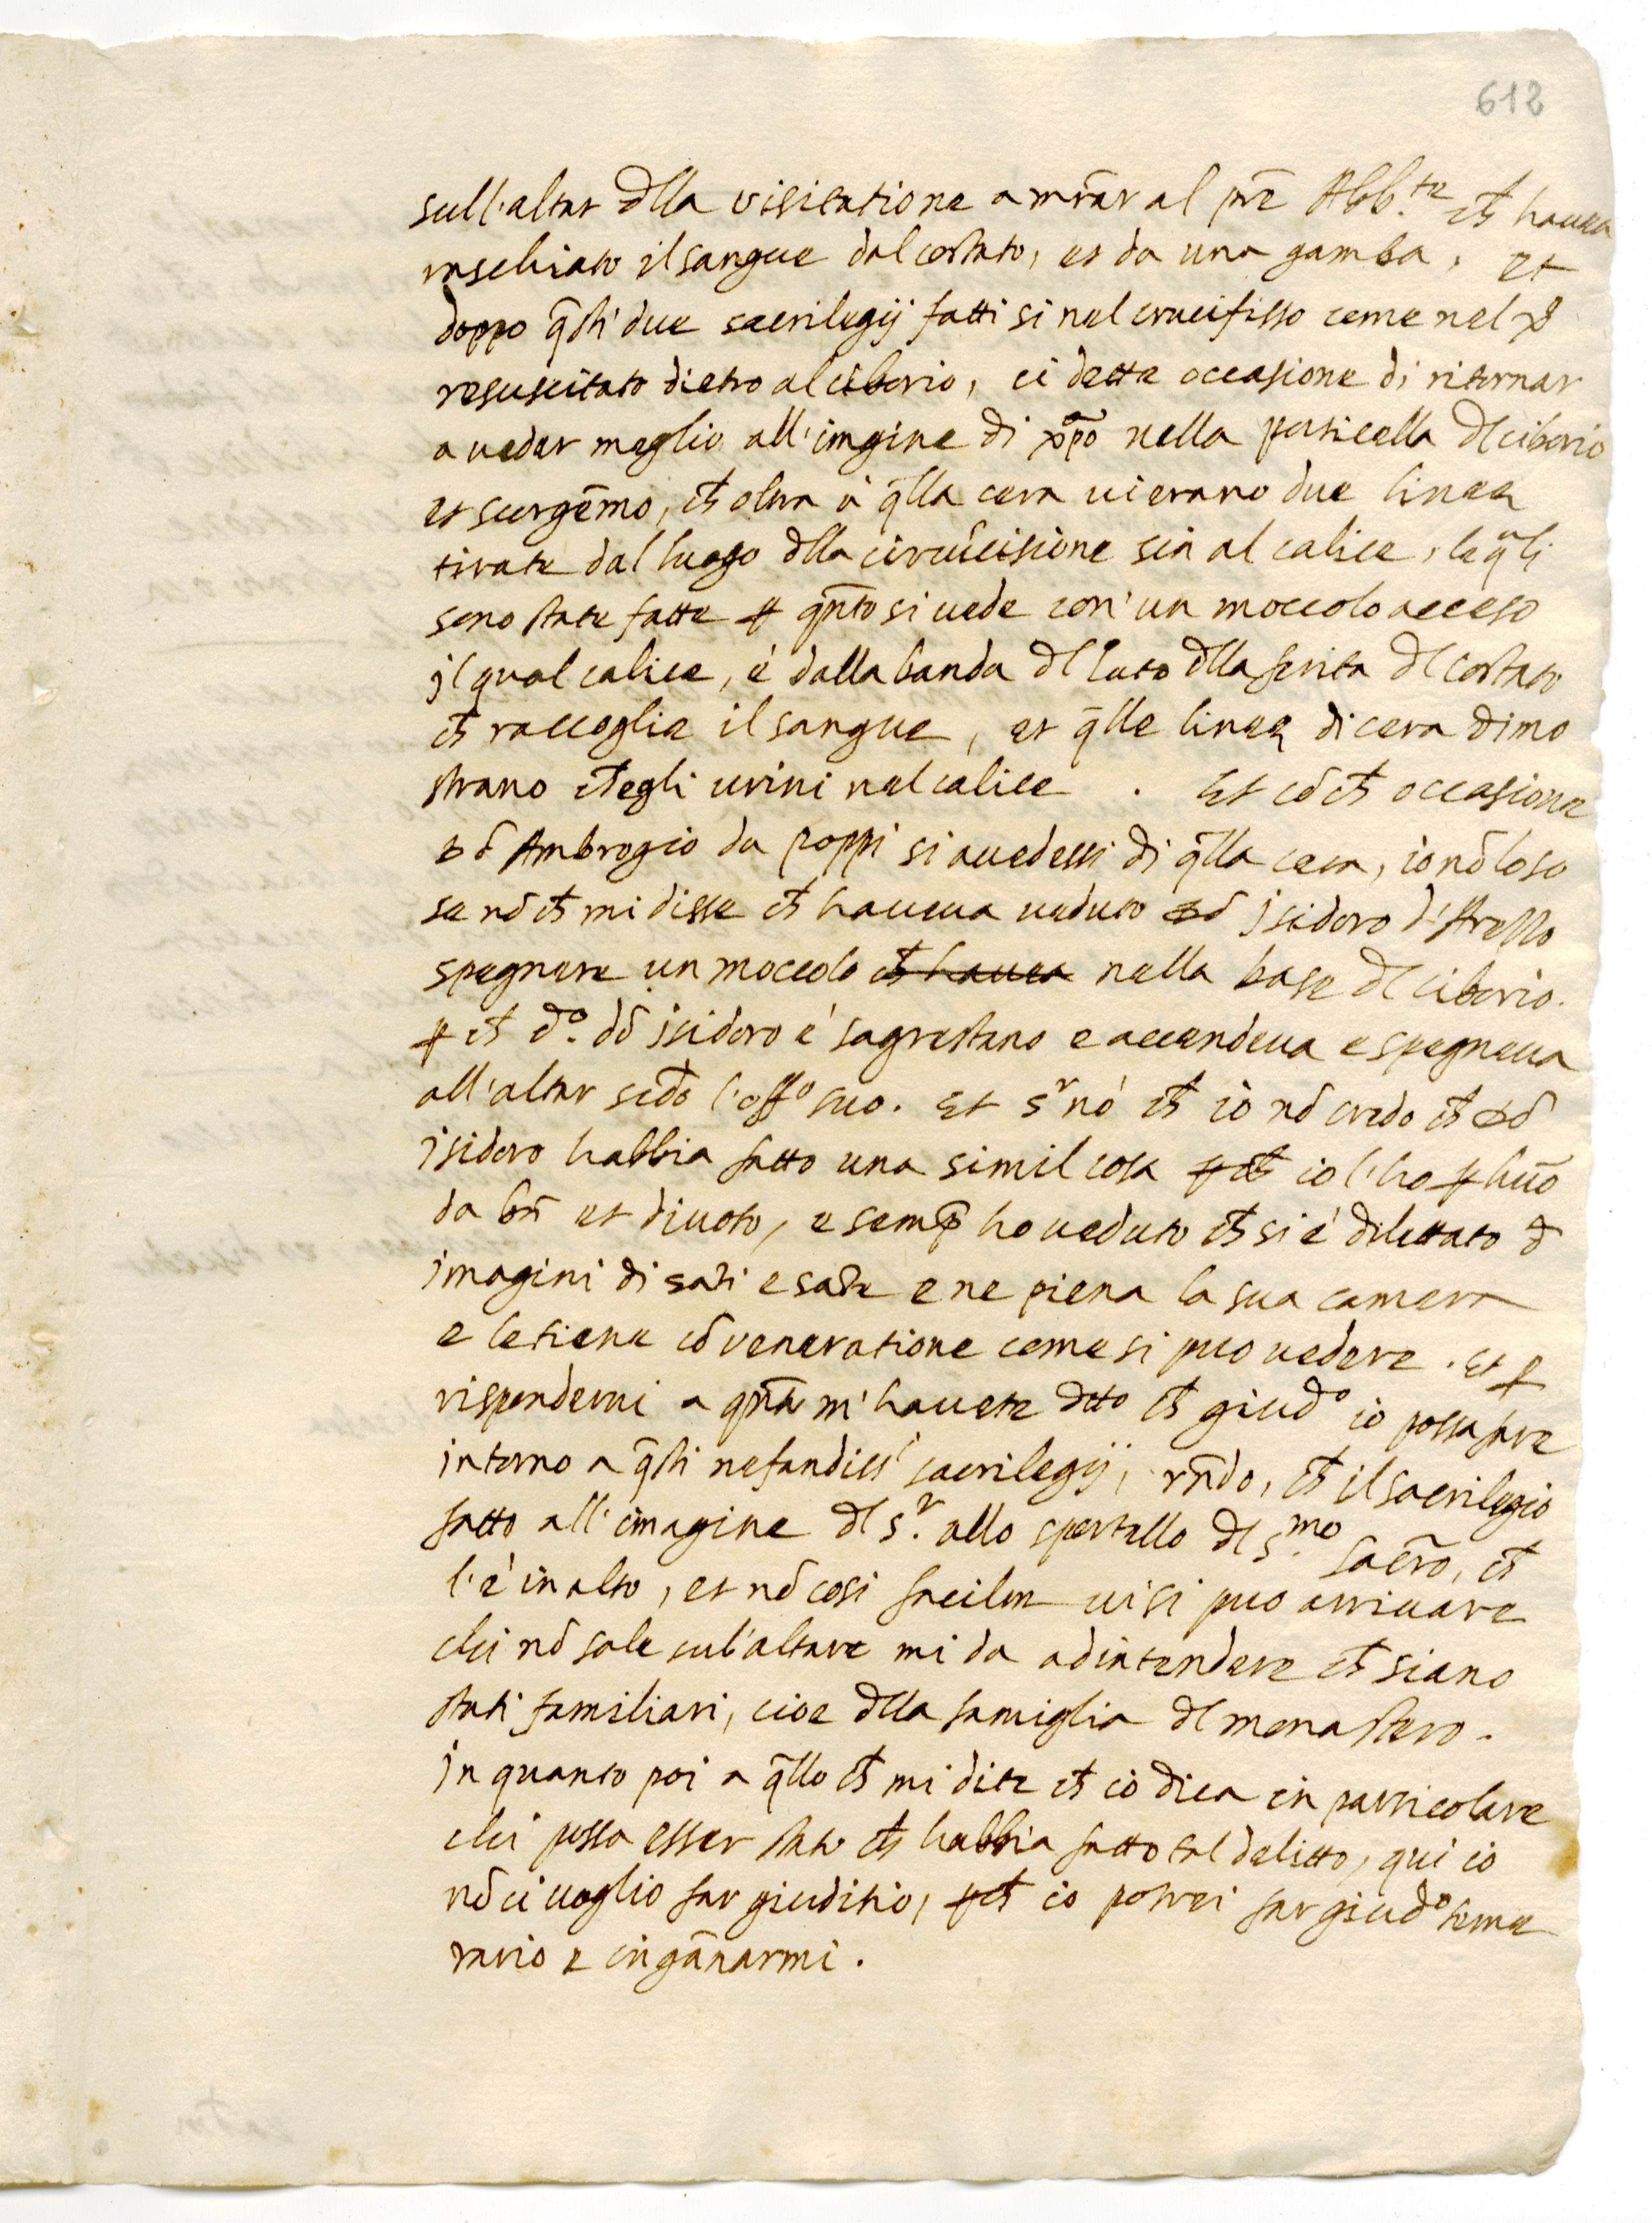 612
sull'altar dlla visitatione a mr̃ar al pr̃e Abb.te ch̃ havea
raschiato il sangue dal costato, et da una gamba, et
doppo q̃sti due sacrilegij fatti si nel crucifisso come nel
resuscitato dietro al ciborio, ci dette occasione di ritornar
a veder meglio all'imgine di xp̃o nella porticella dl ciborio
et scorgem̃o, ch̃ oltra à q̃lla cera vi erano due linee
tirate dal luogo dlla circuñcisione sin al calice, le q̃li
sono state fatte ꝑ qñto si vede con' un moccolo acceso
jl qual calice, è dalla banda dl lato dlla ferita dl costato
ch̃ raccoglie il sangue, et q̃lle linee di cera dimo
strano ch̃ egli urini nel calice. Et cõ ch̃ occasione
dõ Ambrogio da poppi si avedessi di q̃lla cera, io nõ lo so
se nõ ch̃ mi disse ch̃ haveva veduto dõ jsidoro d'Arezzo
spegnere un moccolo ch̃ havea nella base dl ciborio.
ꝑ ch̃ d.o dõ jsidoro è sagrestano e accendeva e spegneva
all'altar secd̃o l'offo suo. Et s.r nò ch̃ io nõ credo ch̃ dõ
jsidoro habbia fatto una simil cosa ꝑch̃ io l'ho ꝑ huõ
da bñ et divoto, e semp̃ ho veduto ch̃ si è dilettato d
imagini di sãti e sãte e ne piena la sua camera
e le tiene cõ veneratione come si puo vedere. Et ꝑ
rispondervi a qñto m'havete dtto ch̃ giudo io possa fare
intorno a q̃sti nefandiss' sacrilegij, rñdo, ch̃ il sacrilegio
fatto all'imagine dl s.r allo sportello dl s.mo sacrõ, ch̃
l'è in alto, et nõ cosi facilm vi si puo arrivare
chi nõ sale sul'altare mi da ad intendere ch̃ siano
stati familiari, cioe dlla famiglia dl monastero.
jn quanto poi a q̃llo ch̃ mi dite ch̃ io dica in particolare
chi possa esser stato ch̃ habbia fatto tal delitto, qui io
nõ ci voglio far giuditio, ꝑch̃ io potrei far giudo teme
rario e ingãnarmi.